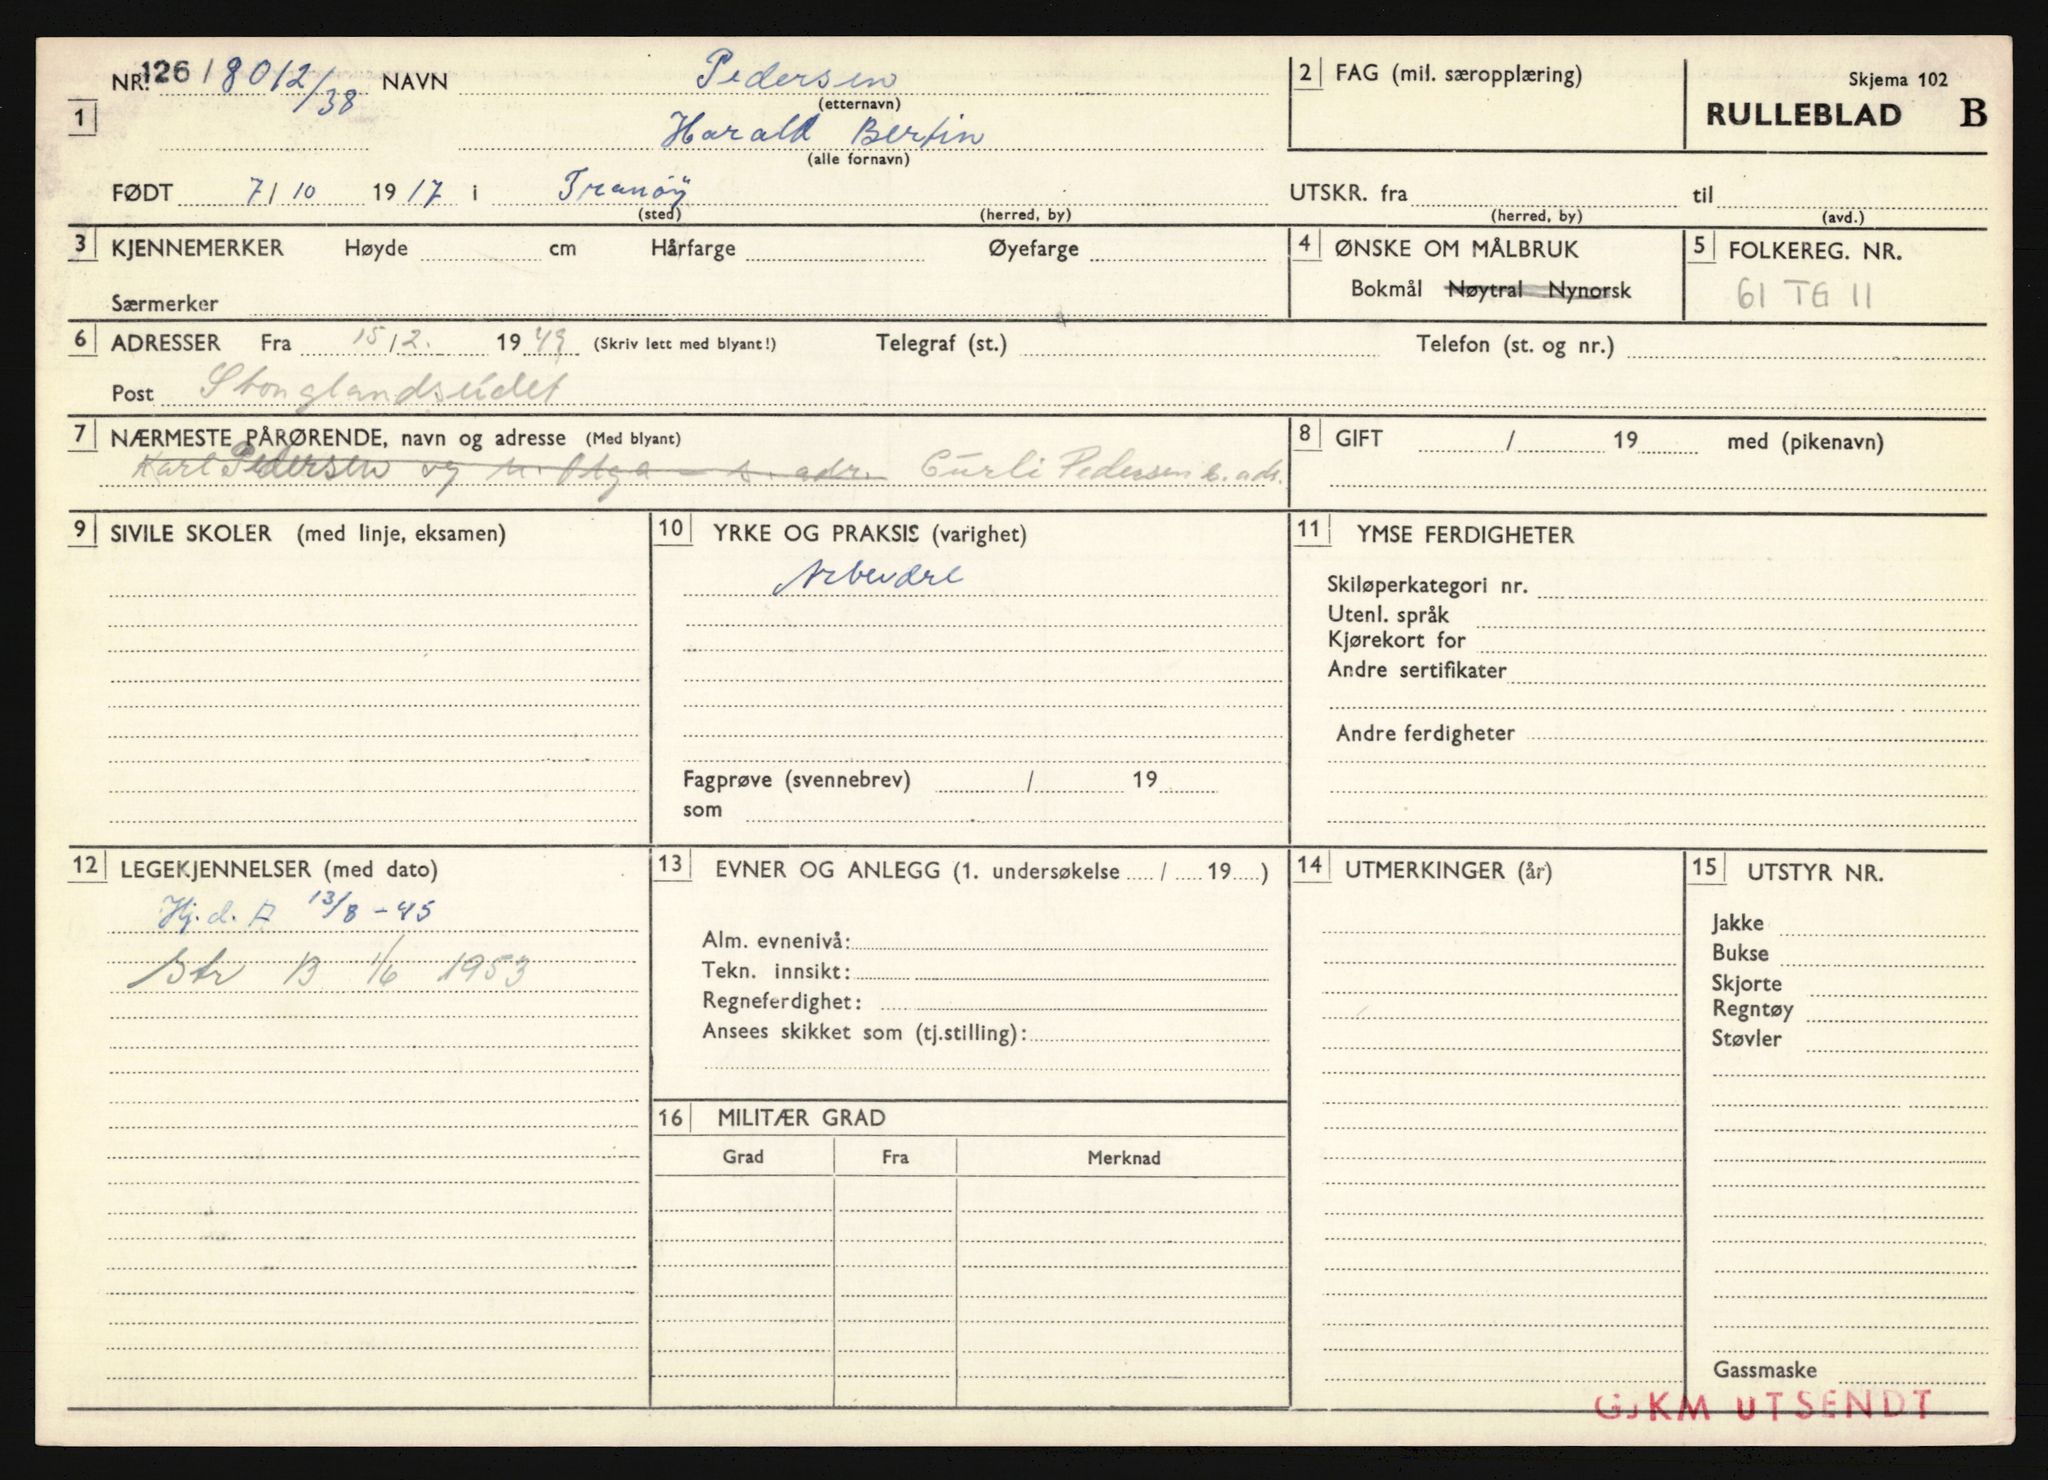 NR. 126 / 8012/38 NAVN Pedersen
(etternavn)
1 Harald Bertin
(alle fornavn)
FØDT 7 / 10 19 17 i Tranöy
(sted) (herred, by)
2 FAG (mil. særopplæring)
Skjema 102
RULLEBLAD B
UTSKR. fra til
(herred, by) (avd.)
3 KJENNEMERKER Høyde cm Hårfarge Øyefarge
Særmerker
4 ØNSKE OM MÅLBRUK
Bokmål Nøytral Nynorsk
5 FOLKEREG. NR.
61 TG 11
6 ADRESSER Fra 15/2. 19 49 (Skriv lett med blyant!) Telegraf (st.) Telefon (st. og nr.)
Post Stonglandseidet
7 NÆRMESTE PÅRØRENDE, navn og adresse (Med blyant)
Karl Pedersen og h. Olga – s. adr. Curli Pedersen s. adr.
8 GIFT / 19 med (pikenavn)
9 SIVILE SKOLER (med linje, eksamen)
10 YRKE OG PRAKSIS (varighet)
Arbeider
Fagprøve (svennebrev) / 19
som
11 YMSE FERDIGHETER
Skiløperkategori nr.
Utenl. språk
Kjørekort for
Andre sertifikater
Andre ferdigheter
12 LEGEKJENNELSER (med dato)
Hj. d. A 13/8 – 45
Str B 1/6 1953
13 EVNER OG ANLEGG (1. undersøkelse / 19 )
Alm. evnenivå:
Tekn. innsikt:
Regneferdighet:
Ansees skikket som (tj.stilling):
14 UTMERKINGER (år)
15 UTSTYR NR.
Jakke
Bukse
Skjorte
Regntøy
Støvler
Gassmaske
16 MILITÆR GRAD
Grad Fra Merknad
GJKM UTSENDT